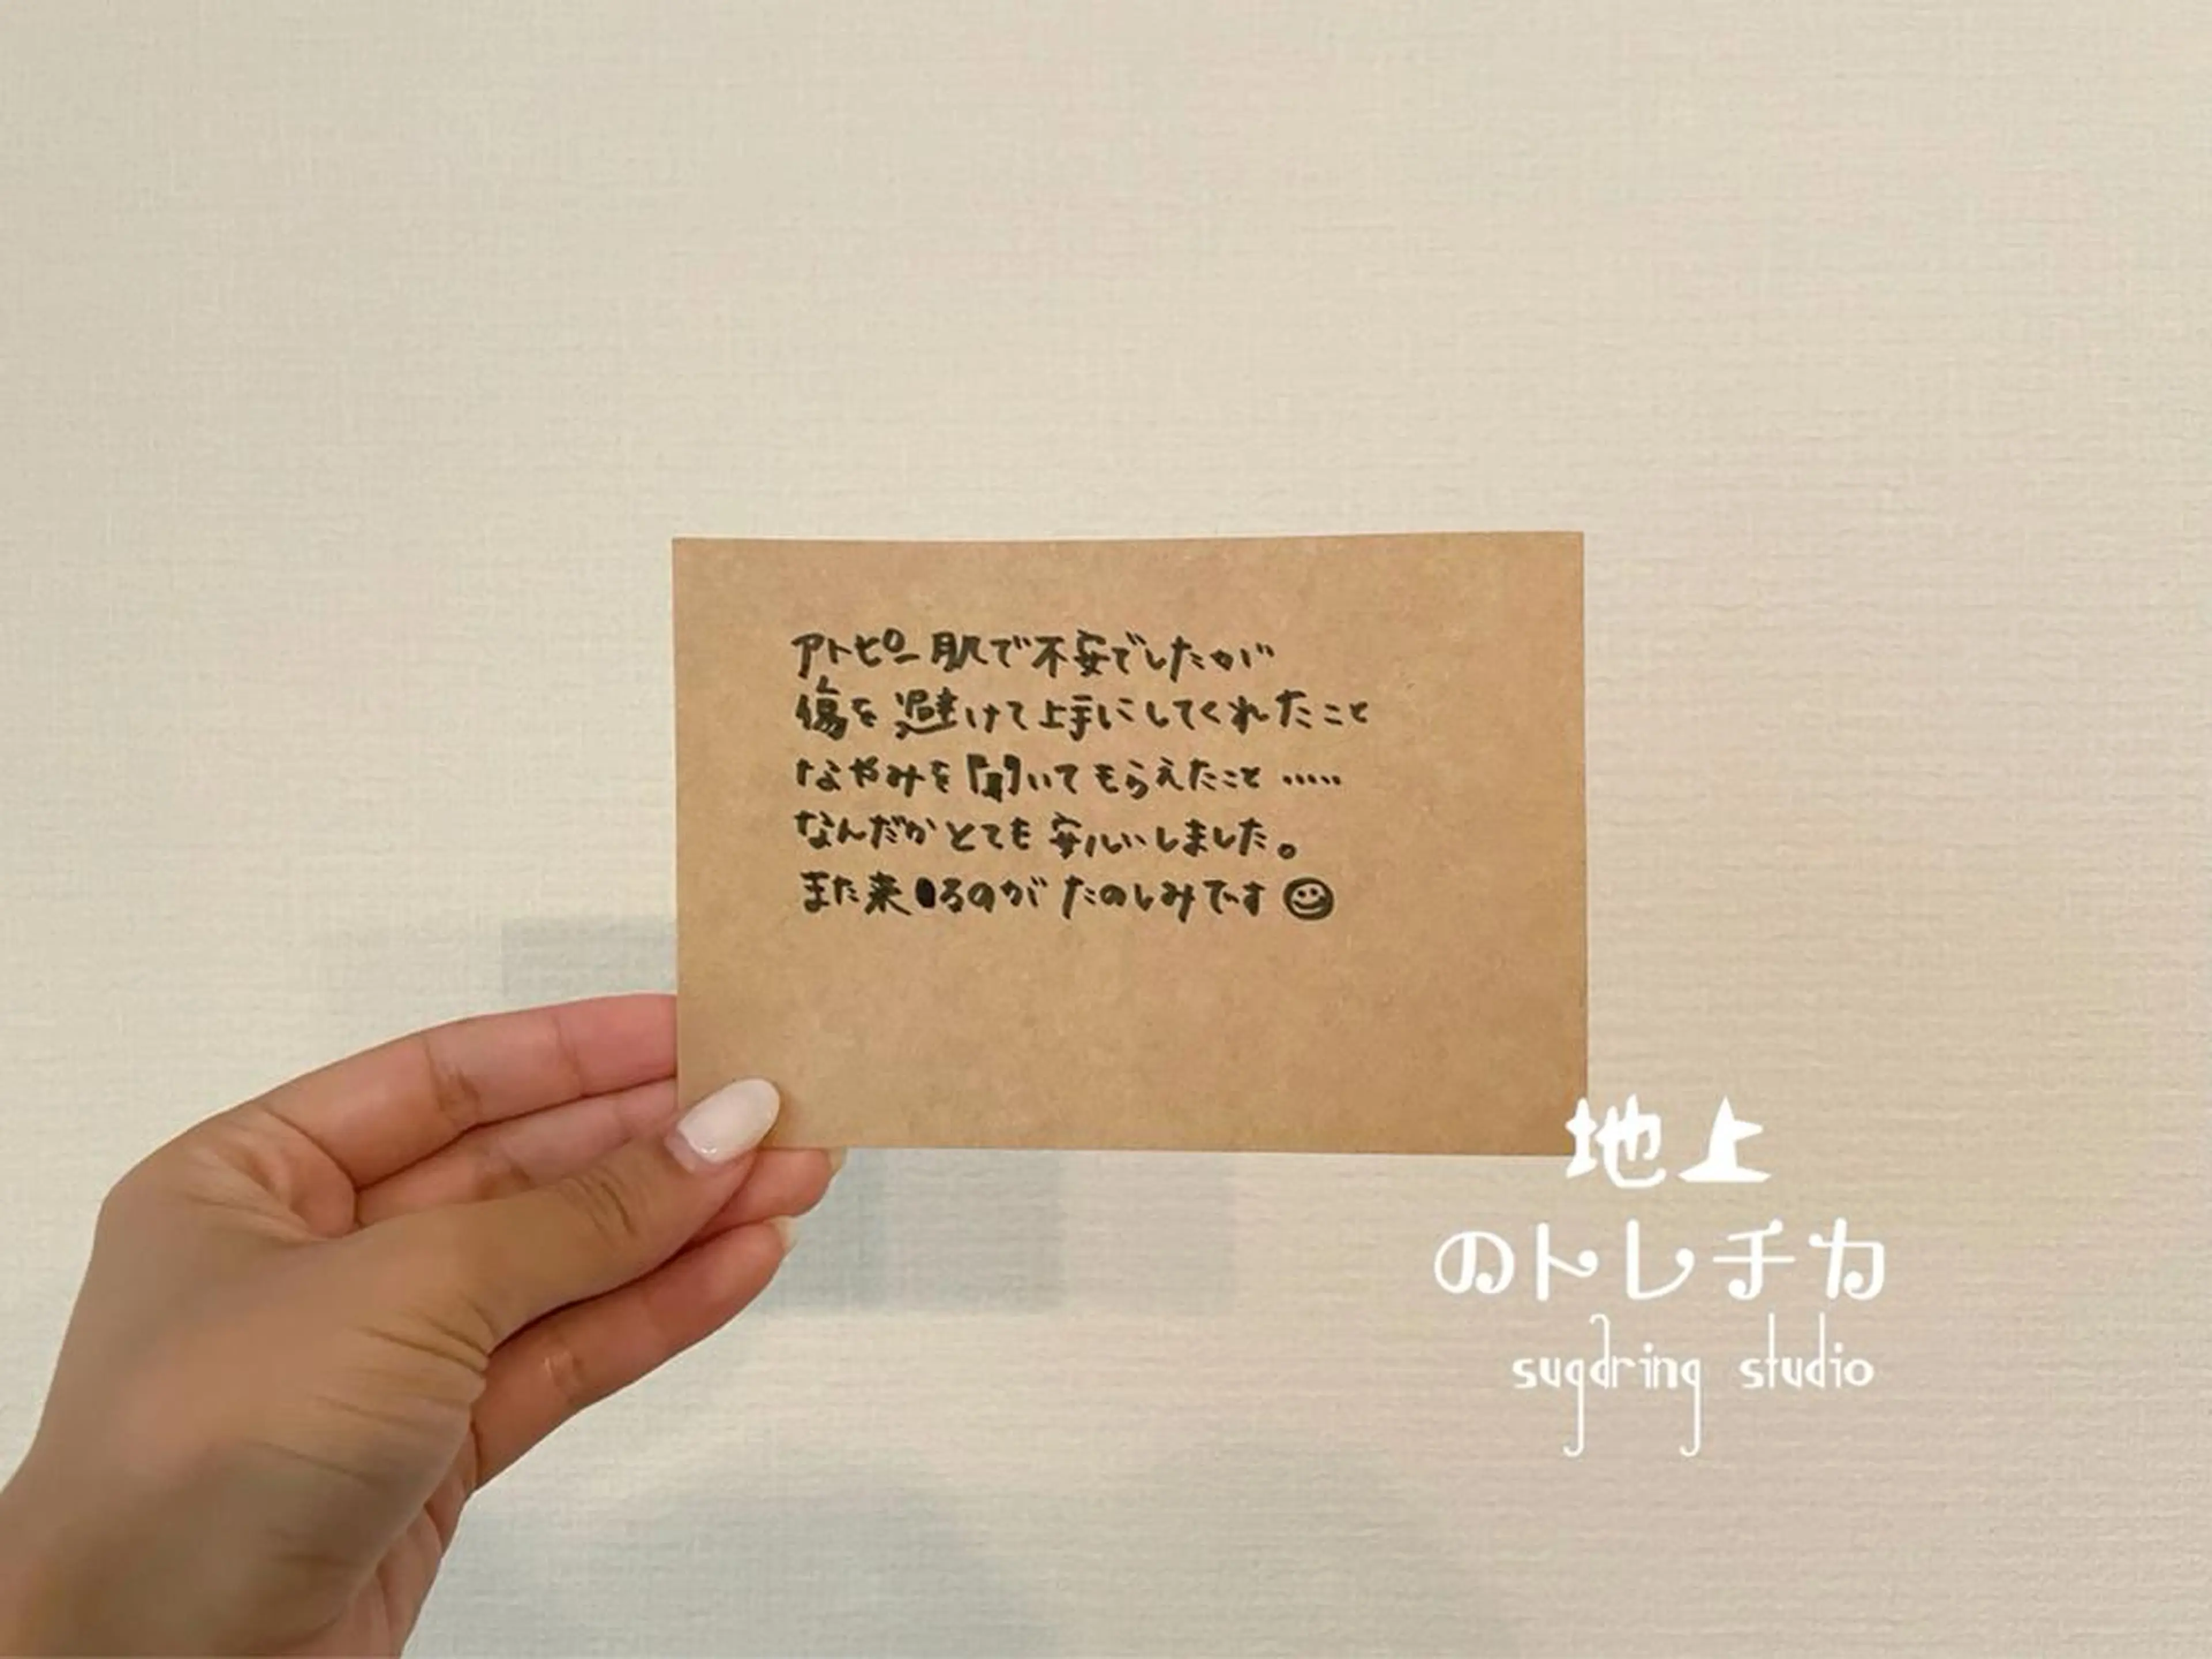 アトピー肌で不安でしたが
傷を避けて上手にしてくれたこと
なやみを聞いてもらえたこと・・・・・
なんだかとても安心しました。
また来るのがたのしみです☺
地上
のトレチカ
sugaring studio